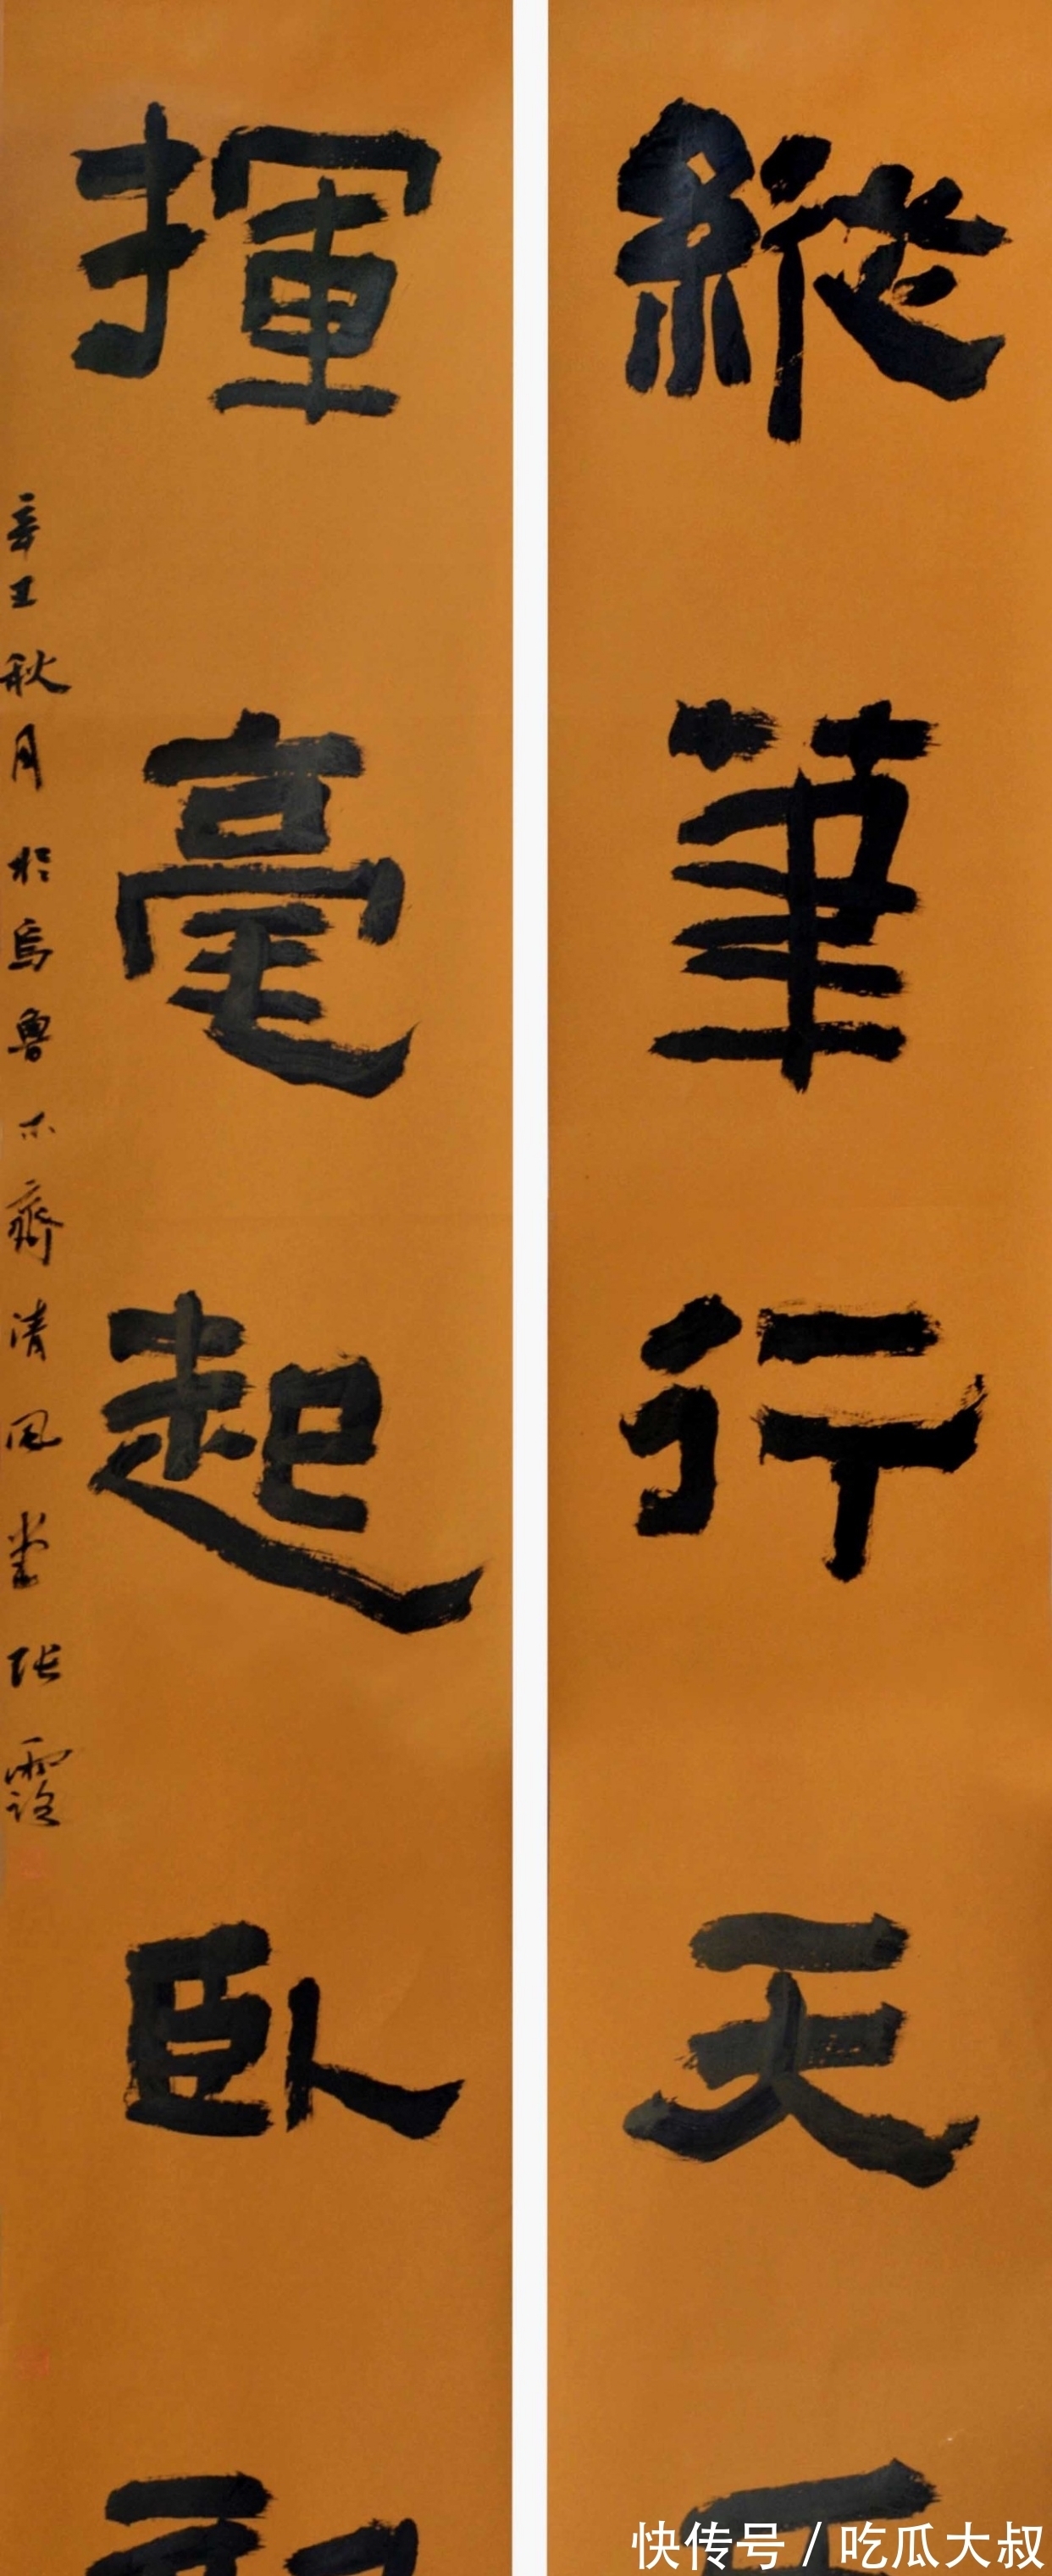 縱筆行天
揮毫起臥
辛丑秋月於烏魯木齊清風堂張露
快传号/吃瓜大叔